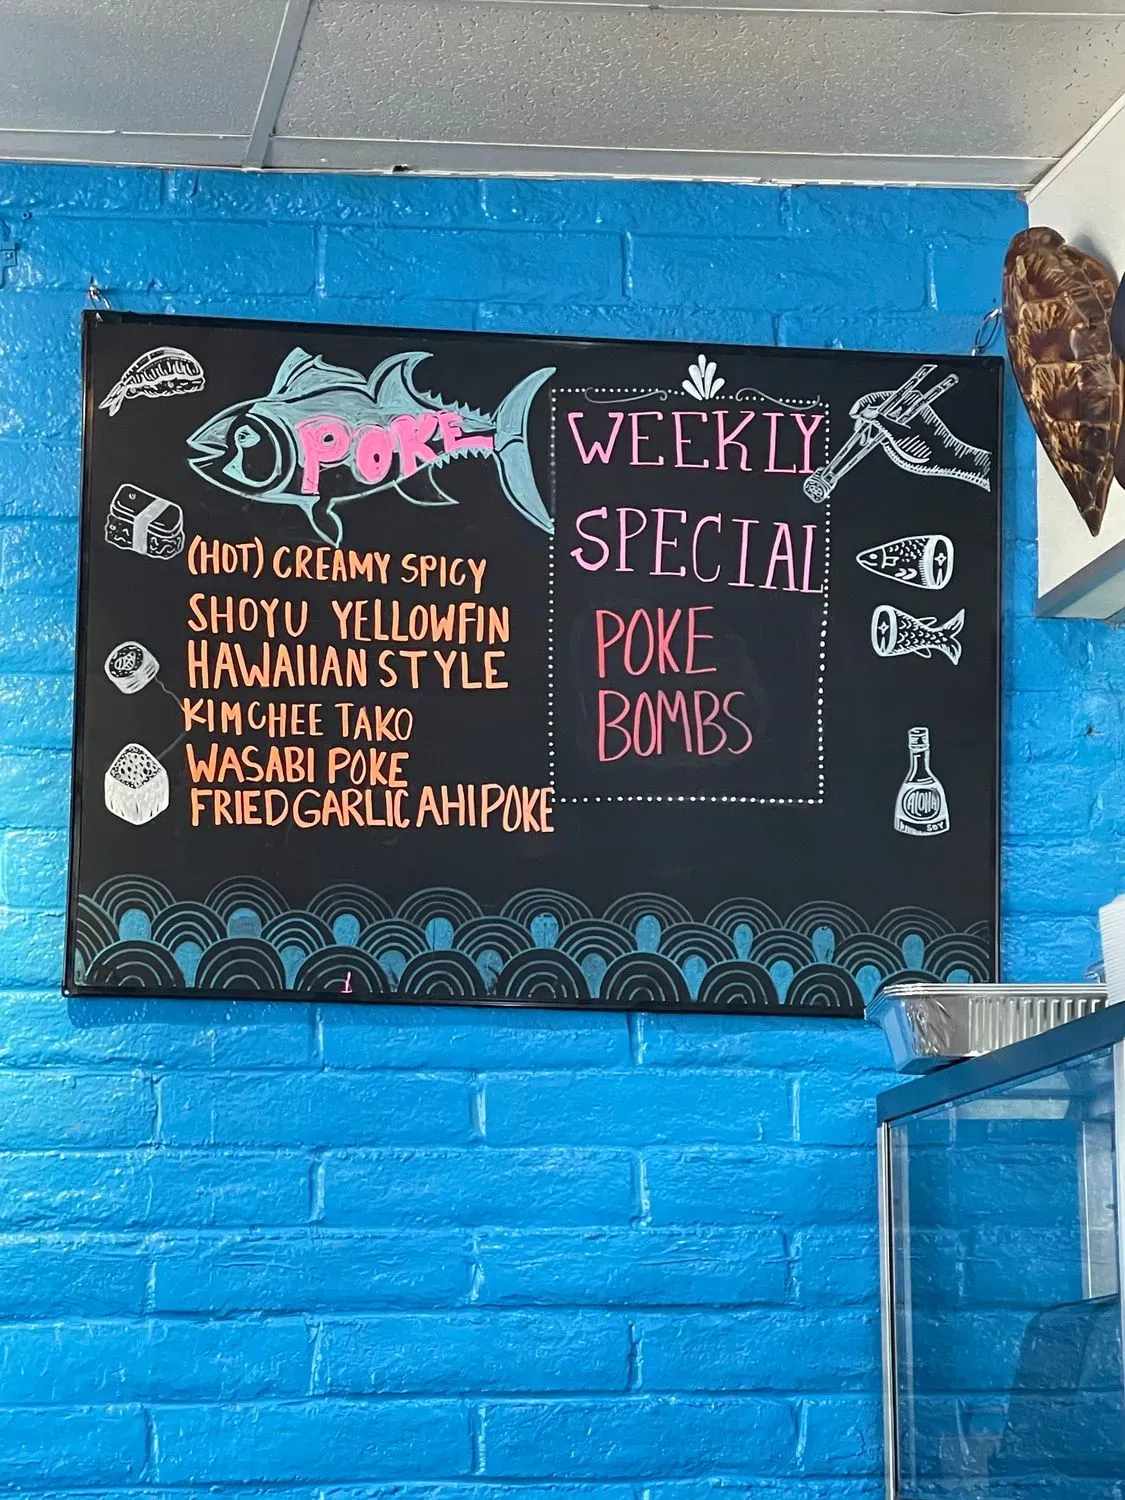 POKE
(HOT) CREAMY SPICY
SHOYU YELLOWFIN
HAWAIIAN STYLE
KIMCHEE TAKO
WASABI POKE
FRIED GARLIC AHI POKE
WEEKLY
SPECIAL
POKE
BOMBS
ALOHA
SOY